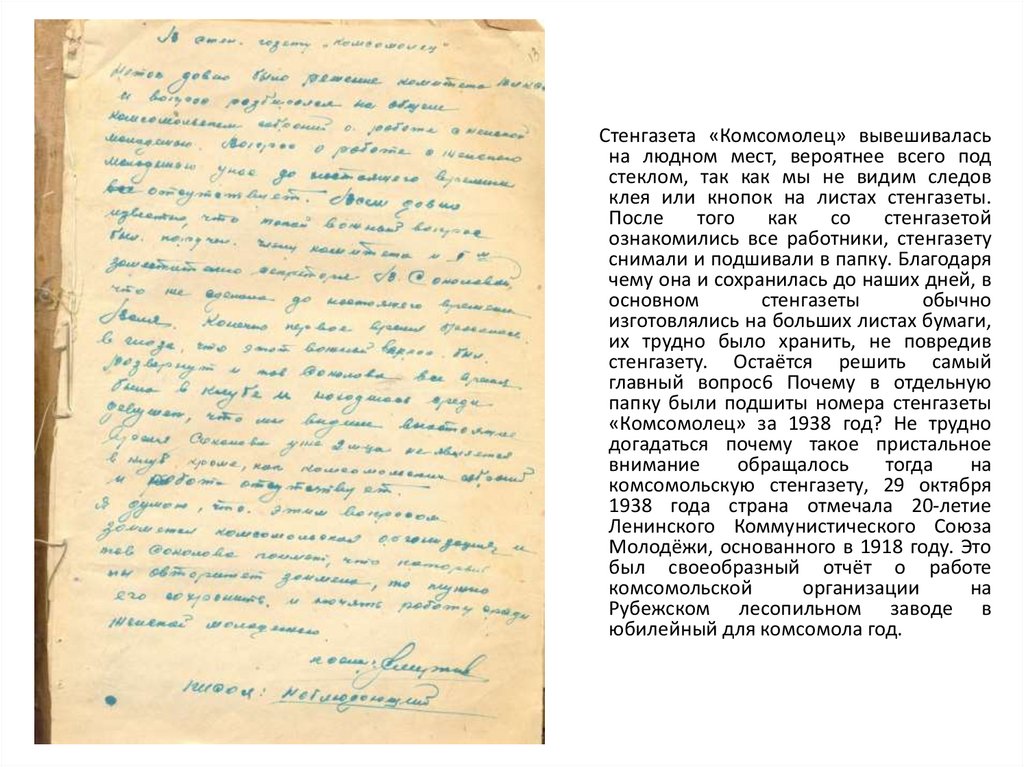 В стен. газету „Комсомолец"
13
Не так давно было решение комитета
и вопрос разбирался на общем
комсомольском собрании о работе с женской
молодежью. Вопрос о работе с женского
молодежью у нас до настоящего времени
все отсутствует. Всем давно
известно, что такой важной вопрос
был поручен. члену комитета и
заместителю секретаря В. Соколовой,
что же сделано до настоящего времени
Конечно первое время бросалось.
в глаза, что этот важной вопрос. был.
развернут и тов Соколова все время
была в клубе и находилась среди
девушек, что мы видим в настоящие
время Соколова уже 2 м-ца не является
в клуб. кроме, как комсомольских собраний
и работа отсутствует.
Я думаю, что. этим вопросом
займется комсомольская организация, и
тов Соколова поймет, что который
авторитет то нужно
его сохранить. и начать работу среди
женской молодежью.
писал: Наблюдающий
Стенгазета «Комсомолец» вывешивалась
на людном мест, вероятнее всего под
стеклом, так как мы не видим следов
клея или кнопок на листах стенгазеты.
После того как со стенгазетой
ознакомились все работники, стенгазету
снимали и подшивали в папку. Благодаря
чему она и сохранилась до наших дней, в
основном стенгазеты обычно
изготовлялись на больших листах бумаги,
их трудно было хранить, не повредив
стенгазету. Остаётся решить самый
главный вопрос6 Почему в отдельную
папку были подшиты номера стенгазеты
«Комсомолец» за 1938 год? Не трудно
догадаться почему такое пристальное
внимание обращалось тогда на
комсомольскую стенгазету, 29 октября
1938 года страна отмечала 20-летие
Ленинского Коммунистического Союза
Молодёжи, основанного в 1918 году. Это
был своеобразный отчёт о работе
комсомольской организации на
Рубежском лесопильном заводе в
юбилейный для комсомола год.